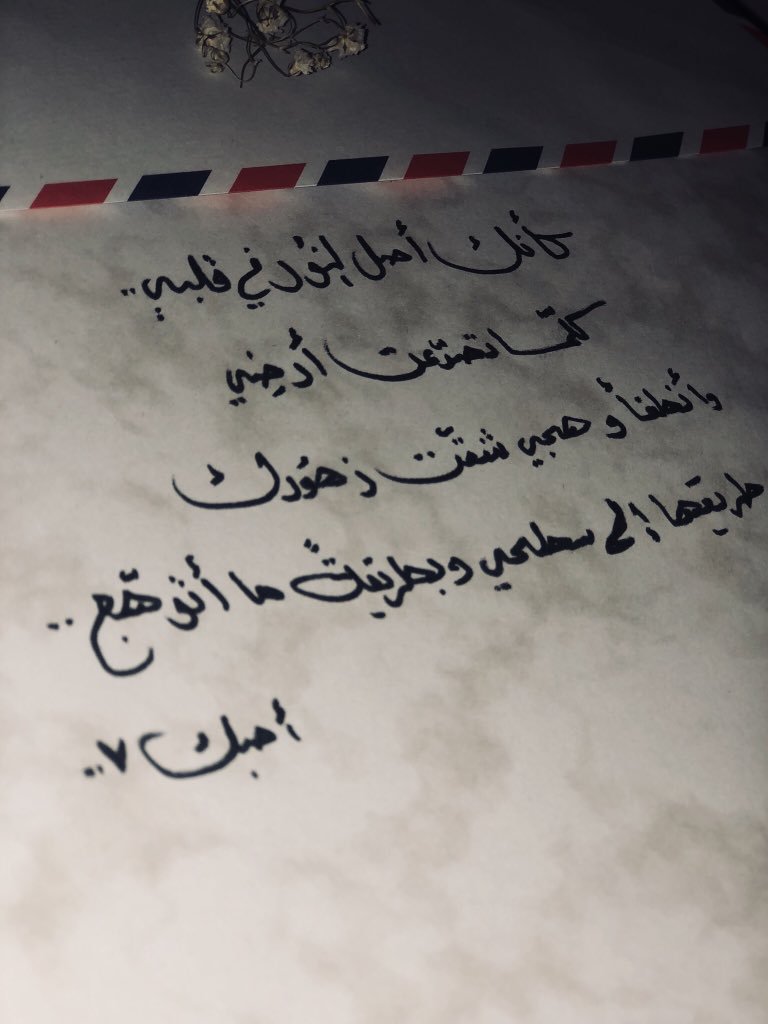 كأنك أصل النؤر في قلبي..
كلّما تصدّعت أرضي
وأنطفأ وهجي شقّت زهؤرك
طريقها إلى سطحي وبطريقةً ما أتوهّج..
أحبك ٧..